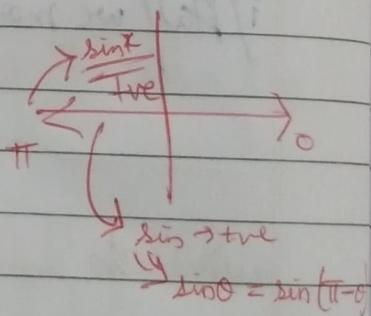 sinx
+ve
π 0
sin → +ve
↳ sinθ = sin(π-θ